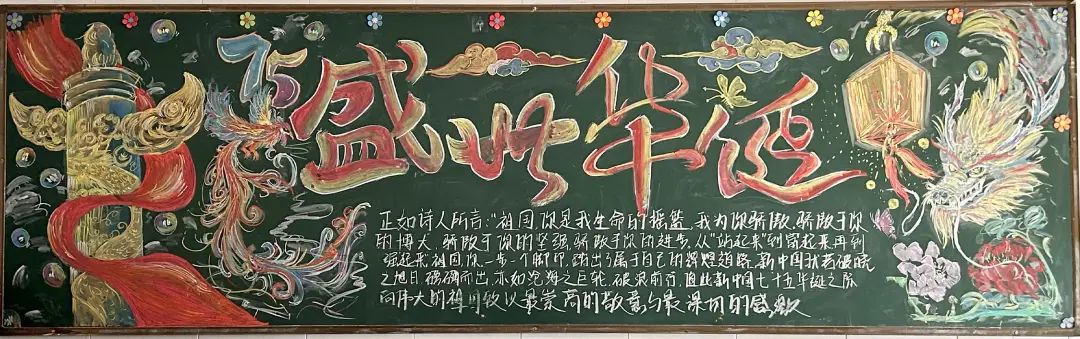 75
盛世华诞
正如诗人所言:"祖国,你是我生命的摇篮,我为你骄傲.骄傲于你
的博大.骄傲于你的坚强.骄傲于你的进步.从"站起来"到富起来再到
强起来"祖国你一步一个脚印,踏出了属于自己的辉煌道路.新中国犹若破晓
之旭日.磅礴而出.亦如沧海之巨轮.破浪前行.值此新中国七十五华诞之际
向伟大的祖国致以最崇高的敬意与最深切的感激